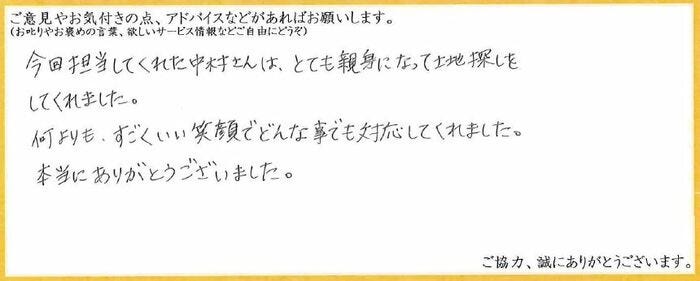 ご意見やお気付きの点、アドバイスなどがあればお願いします。
(お叱りやお褒めの言葉、欲しいサービス情報などご自由にどうぞ)
今回担当してくれた中村さんは、とても親身になって土地探しを
してくれました。
何よりも、すごくいい笑顔でどんな事でも対応してくれました。
本当にありがとうございました。
ご協力、誠にありがとうございます。